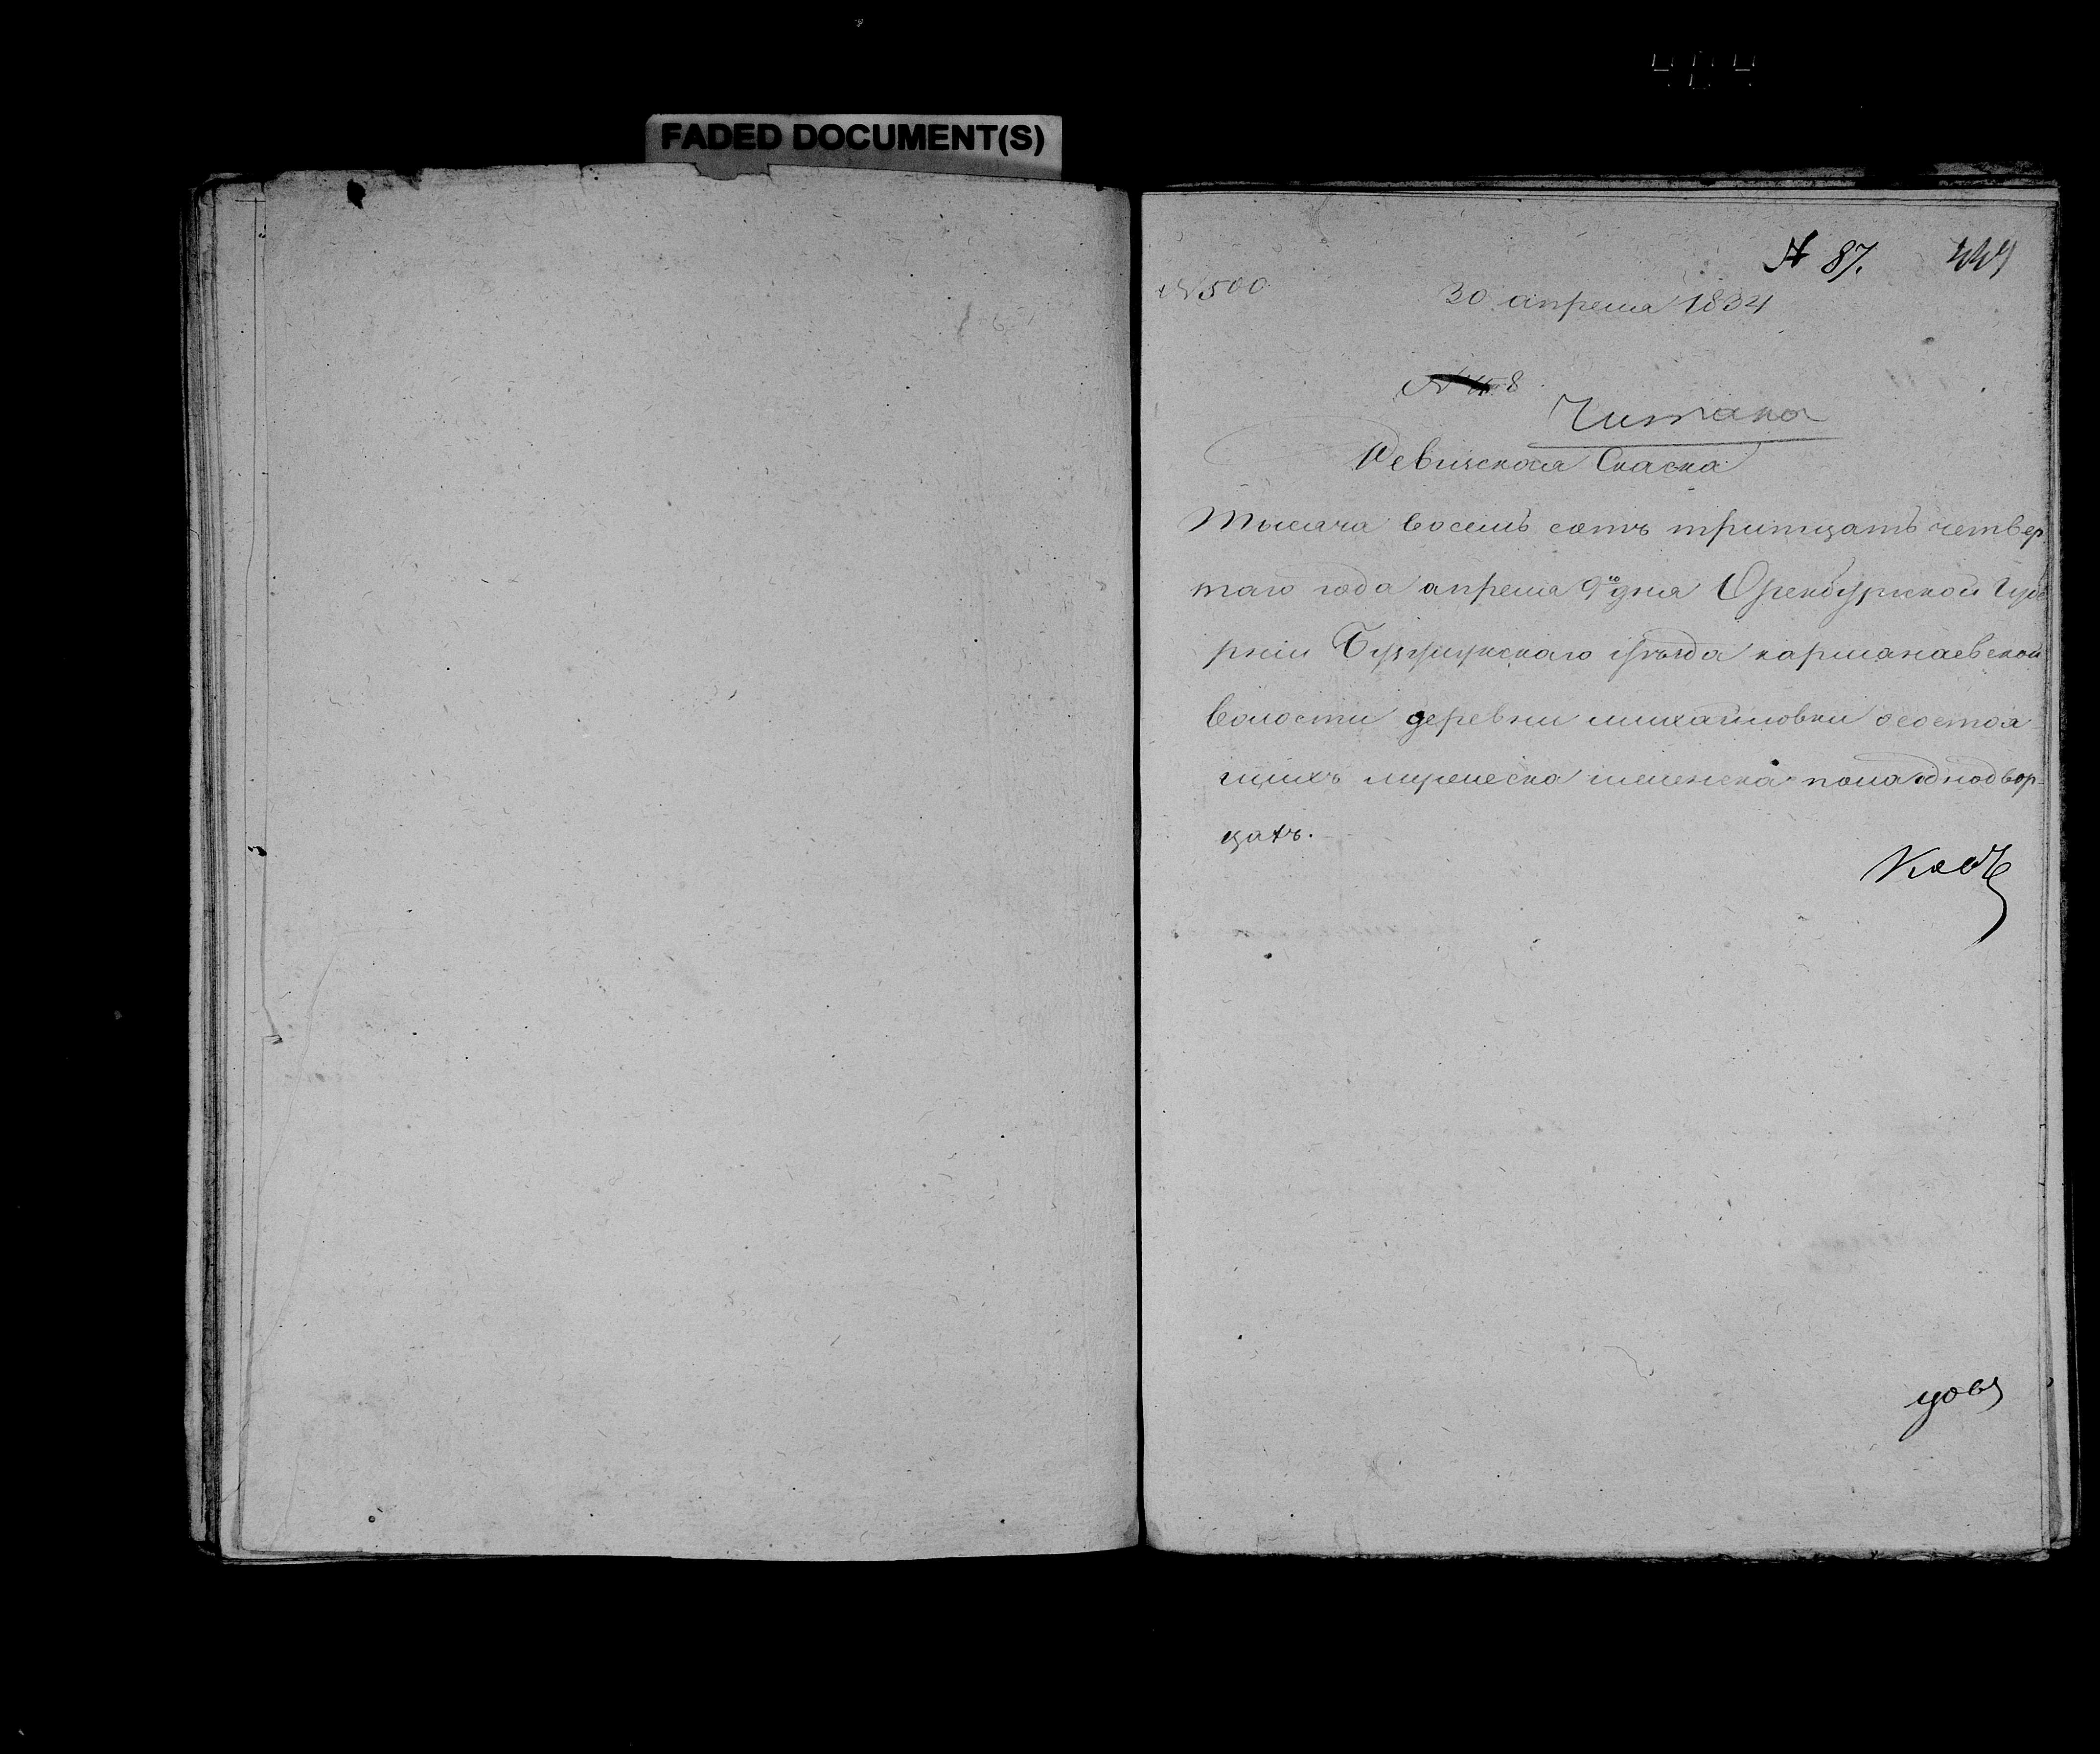 FADED DOCUMENT(S)
№ 87.
№ 500
30 апреля 1834
№ 8
Читана
Ревизская Скаска
Тысяча восемь сотъ тритцать четвер
таго года апреля 9го дня Оренбургской Губе
рнии Бузулукского уѣзда кармалаевской
волости деревни михайловки о состоя
щихъ мужеска и женска пола однодвор-
цахъ.
цовъ